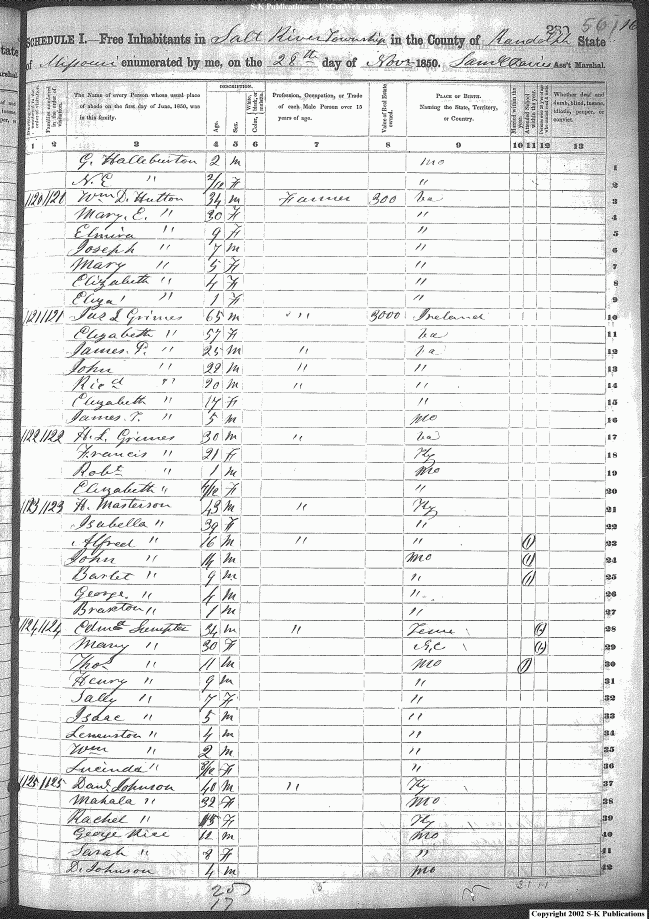 S-K Publications - USGenWeb Archives
SCHEDULE I.—Free Inhabitants in Salt River Township in the County of Randolph State
of Missouri enumerated by me, on the 28th day of Nov 1850. Saml Davis Ass't Marshal.
The Name of every Person whose usual place of abode on the first day of June, 1850, was in this family.
DESCRIPTION.
Age. Sex.
Profession, Occupation, or Trade of each Male Person over 15 years of age.
Value of Real Estate owned.
PLACE OF BIRTH. Naming the State, Territory, or Country.
Married within the year.
Attended School within the year.
Whether deaf and dumb, blind, insane, idiotic, pauper, or convict.
1 2 3 4 5 6 7 8 9 10 11 12 13
G. Halleburton 2 m Mo 1
N. E " 2/12 F " 2
1120 1120 Wm D. Hutton 34 m Farmer 300 Va 3
Mary, E. " 30 F " 4
Elmira " 9 F " 5
Joseph " 7 m " 6
Mary " 5 F " 7
Elizabeth " 4 F " 8
Eliza " 1 F " 9
1121 1121 Jas L Grimes 65 m " 3000 Ireland 10
Elizabeth " 57 F Va 11
James. P. " 25 m " Va 12
John " 22 m " " 13
Ricd " 20 m " " 14
Elizabeth " 17 F " 15
James. T. " 5 m Mo 16
1122 1122 H. L. Grimes 30 m " Va 17
Francis " 21 F Ky 18
Robt " 1 m Mo 19
Elizabeth " F " 20
1123 1123 H. Masterson 43 m " Ky 21
Isabella " 39 F " 22
Alfred " 16 m " " (1) 23
John " 14 m Mo (1) 24
Barlet " 9 m " (1) 25
George. " 4 m " 26
Braxton " 1 m " 27
1124 1124 Edmd Sumpter 34 m " Tenn 28
Mary " 30 F N.C 29
Thos " 11 m Mo (1) 30
Henry " 9 m " 31
Sally " 7 F " 32
Isaac " 5 m " 33
" 4 m " 34
Wm " 2 m " 35
Lucinda " F " 36
1125 1125 Danl Johnson 40 m " Ky 37
Mahala " 32 F Mo 38
Rachel " 15 F Ky 39
George Rice 12 m Mo 40
Sarah " 8 F " 41
D. Johnson 4 m Mo 42
25
17
Copyright 2002 S-K Publications